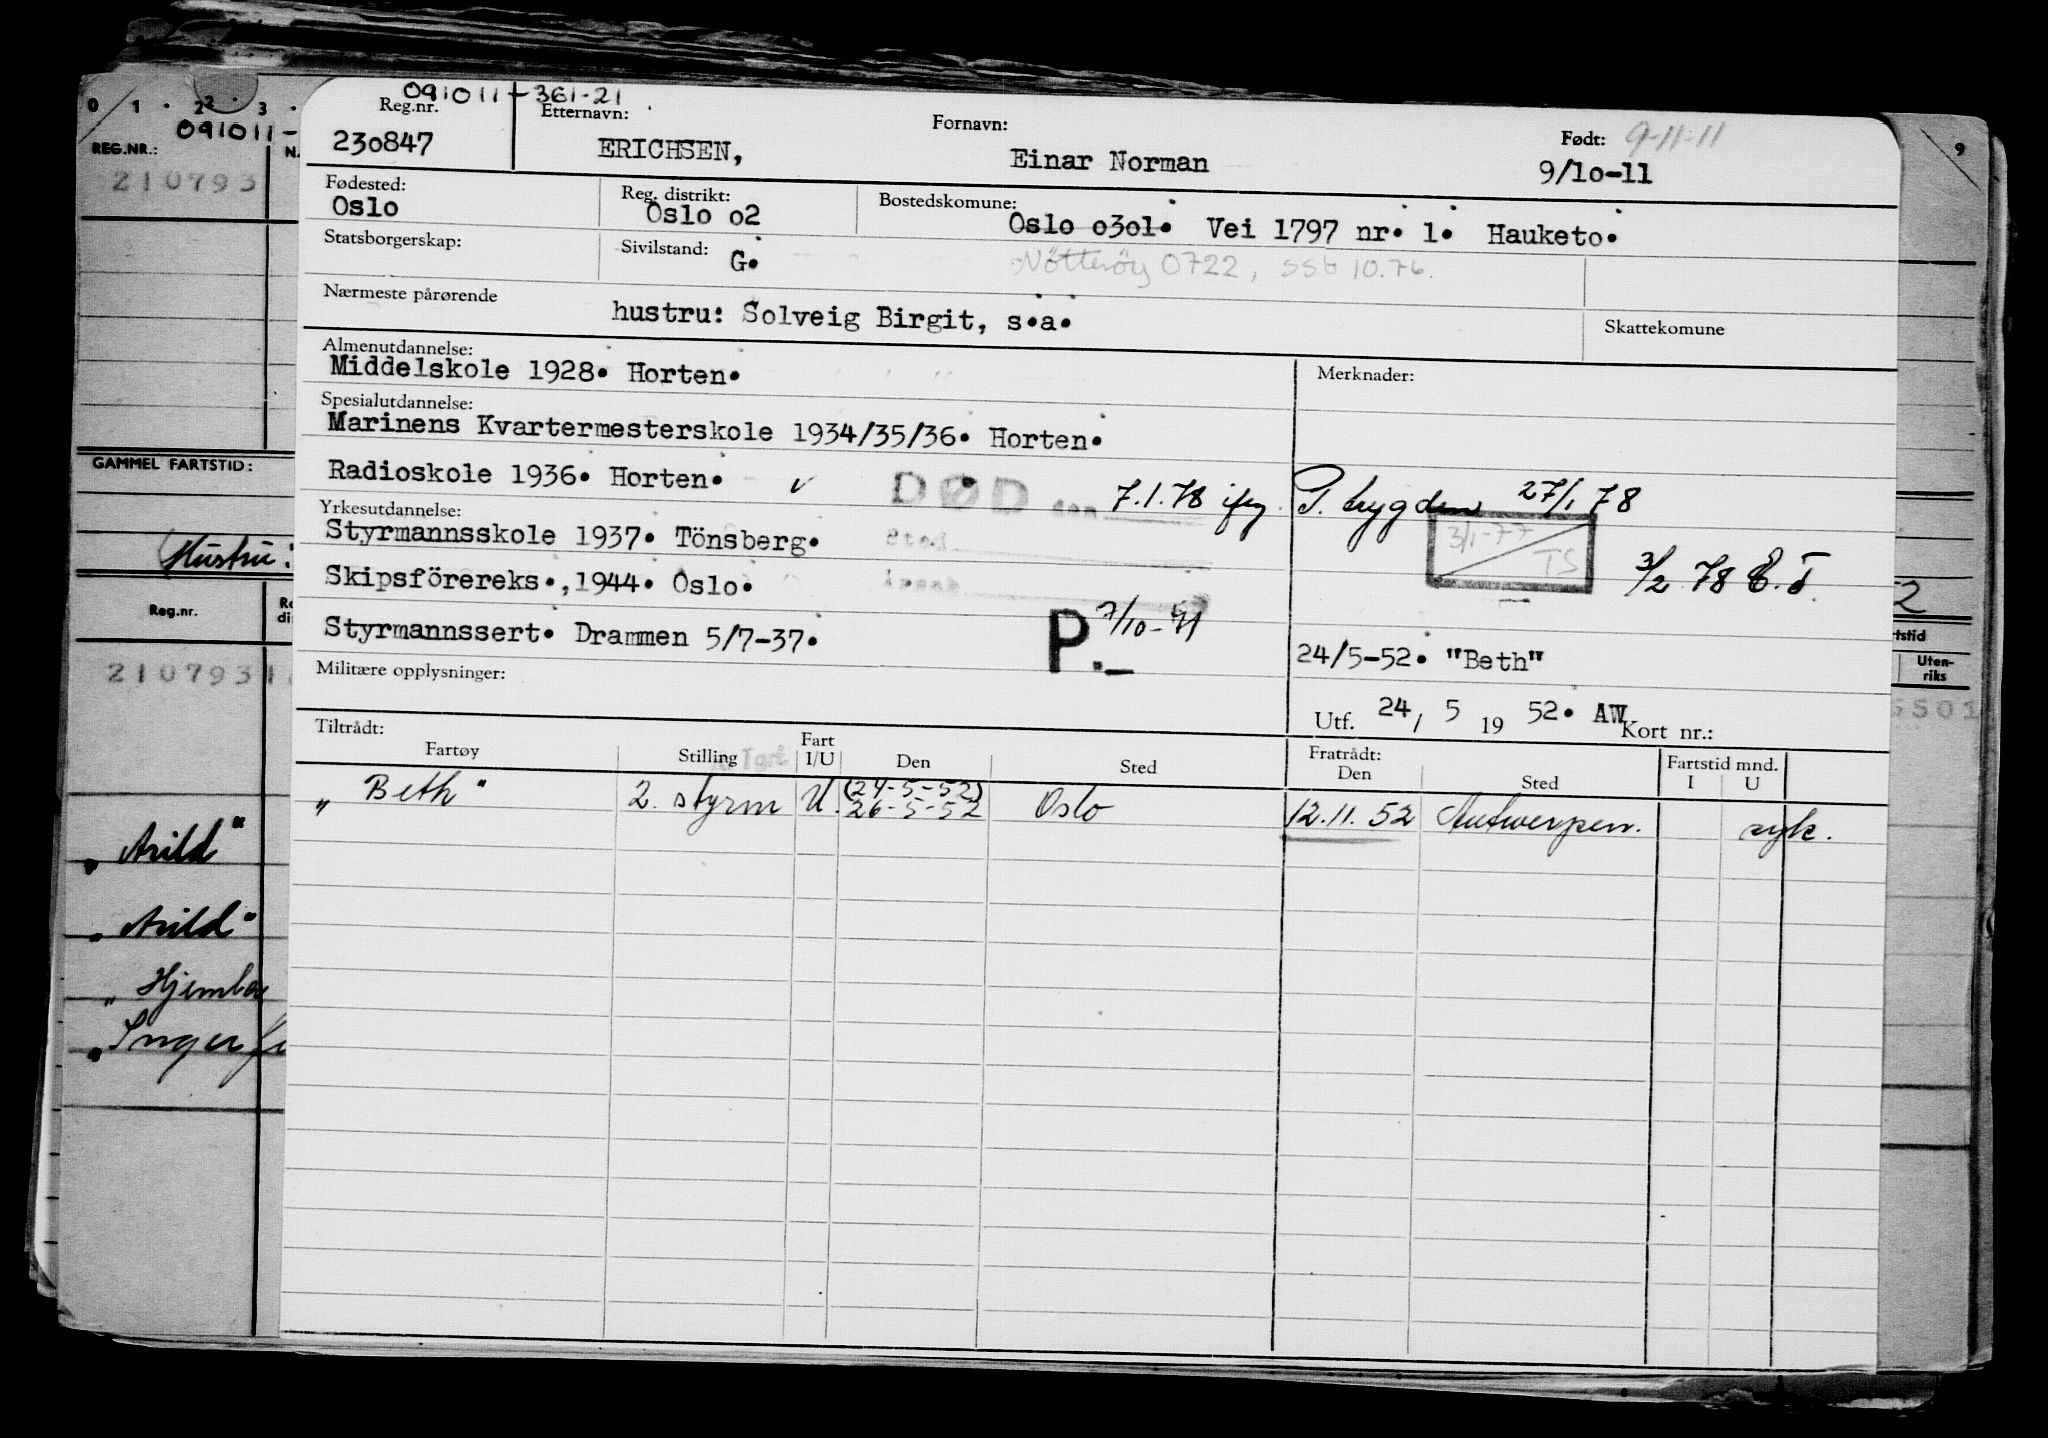 0 1 · 2 2 · 3 · 9
091011-
REG.NR.:
210793
GAMMEL FARTSTID:
Hustru:
Reg.nr.
210793
„Arild"
„Arild"
„Hjemle
„Inger
2
Uten-
riks
091011-361-21
Reg.nr. Etternavn: Fornavn: Født: 9-11-11
230847 ERICHSEN, Einar Norman 9/10-11
Fødested: Reg. distrikt: Bostedskomune:
Oslo Oslo 02 Oslo 0301. Vei 1797 nr. 1. Hauketo.
Statsborgerskap: Sivilstand: G. Nötteröy 0722, ssb 10.76.
Nærmeste pårørende
hustru: Solveig Birgit, s.a. Skattekomune
Almenutdannelse: Merknader:
Middelskole 1928. Horten.
Spesialutdannelse:
Marinens Kvartermesterskole 1934/35/36. Horten.
Radioskole 1936. Horten. DØD den 7.1.78 ifg. P. trygden 27/1 78
Yrkesutdannelse: Sted 3/1-77
Styrmannsskole 1937. Tönsberg. TS
Skipsförereks.,1944. Oslo. 3/2 78 E.T.
Styrmannssert. Drammen 5/7-37. P. 7/10-71
24/5-52. "Beth"
Militære opplysninger:
Utf. 24/ 5 19 52. AW Kort nr.:
Tiltrådt: Fratrådt: Fartstid mnd.
Fartøy Stilling Fart I/U Den Sted Den Sted I U
„Beth" 2. styrm U. (24-5-52) 26-5-52 Oslo 12.11.52 Antwerpen. syk.